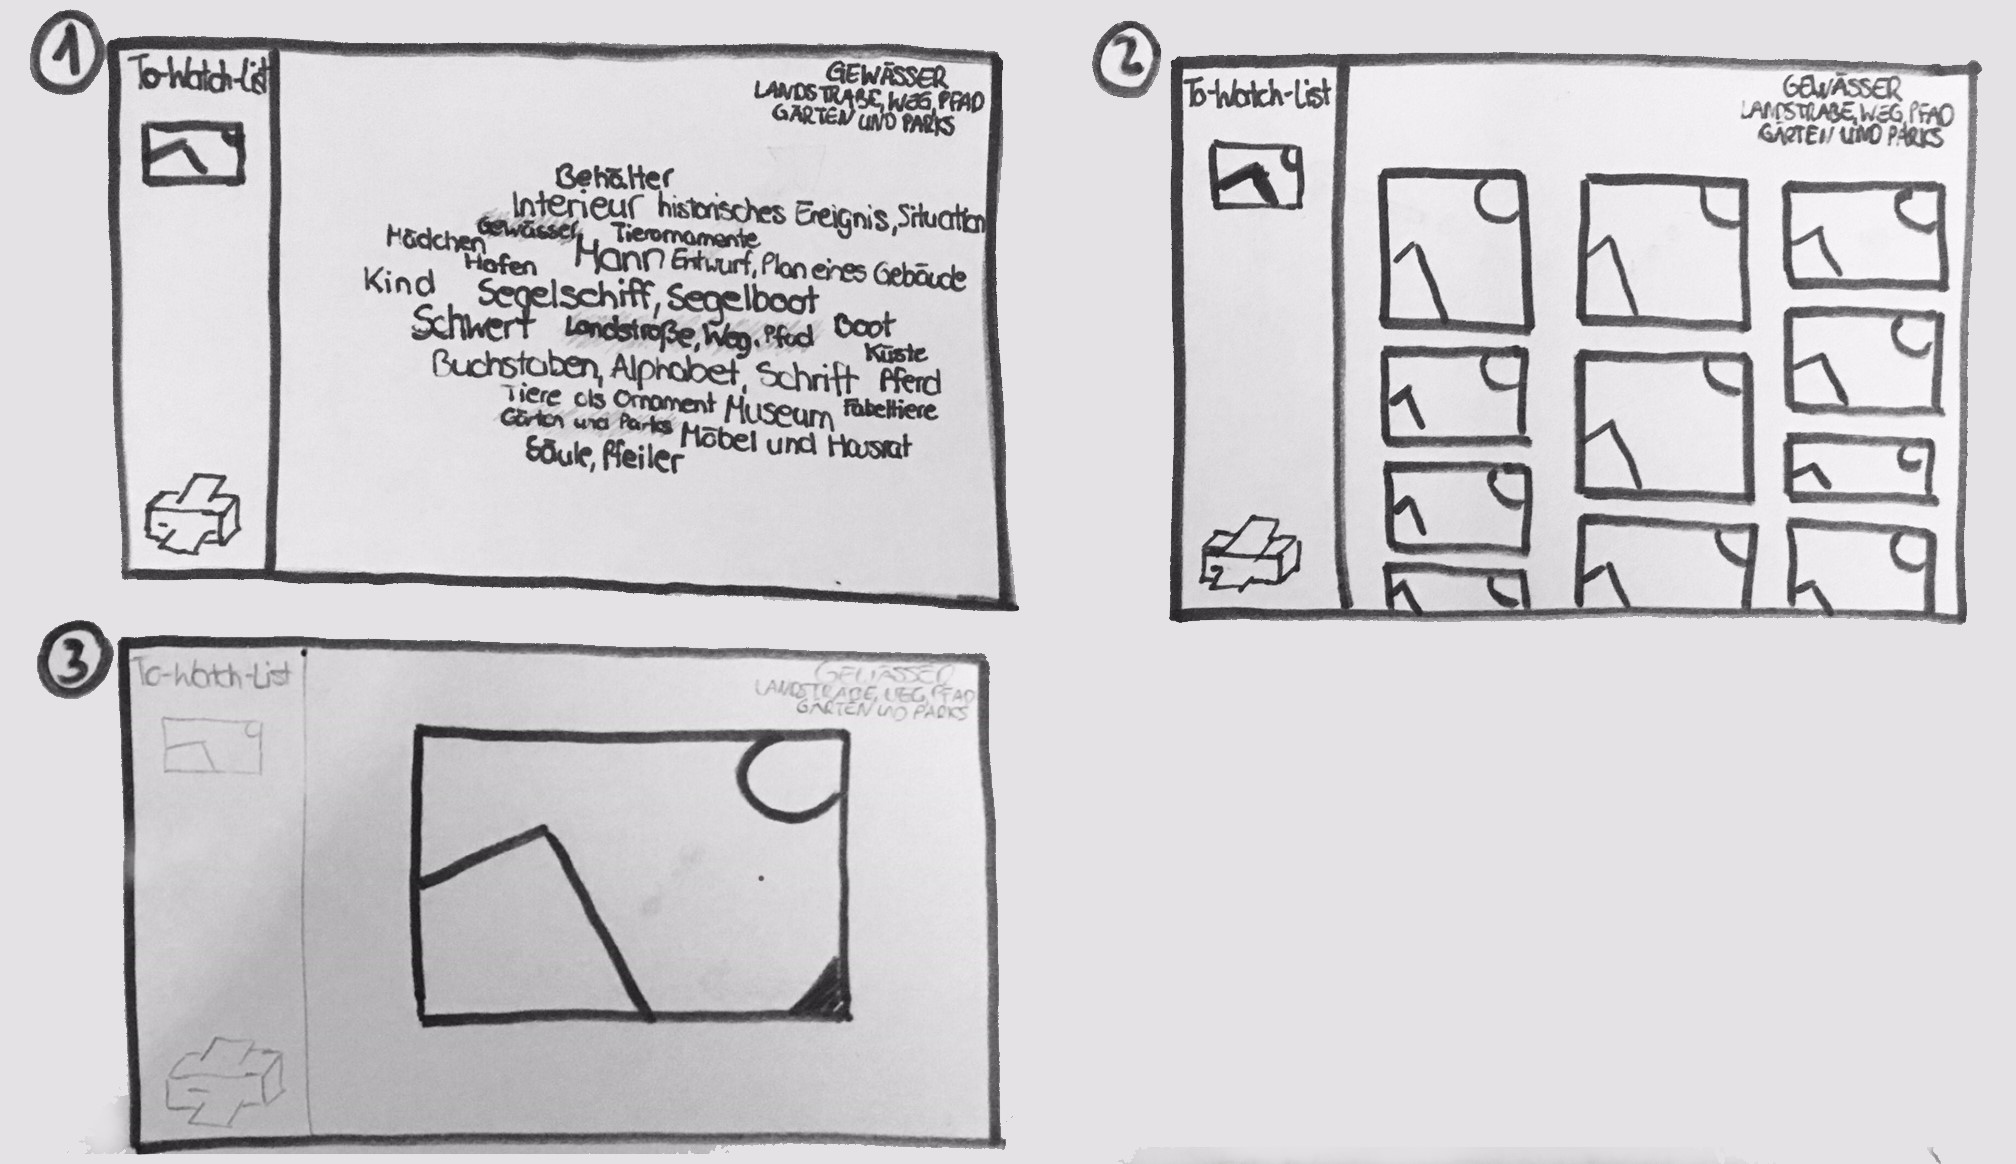 1
To-Watch-List
GEWÄSSER
LANDSTRAßE, WEG, PFAD
GÄRTEN UND PARKS
Behälter
Interieur historisches Ereignis, Situation
Gewässer Tierornamente
Mädchen Mann Entwurf, Plan eines Gebäude
Hafen
Kind Segelschiff, Segelboot
Schwert Landstraße, Weg, Pfad Boot
Küste
Buchstaben, Alphabet, Schrift Pferd
Tiere als Ornament Museum Fabeltiere
Gärten und Parks Möbel und Hausrat
Säule, Pfeiler
2
To-Watch-List
GEWÄSSER
LANDSTRAßE, WEG, PFAD
GÄRTEN UND PARKS
3
To-Watch-List
GEWÄSSER
LANDSTRAßE, WEG, PFAD
GÄRTEN UND PARKS